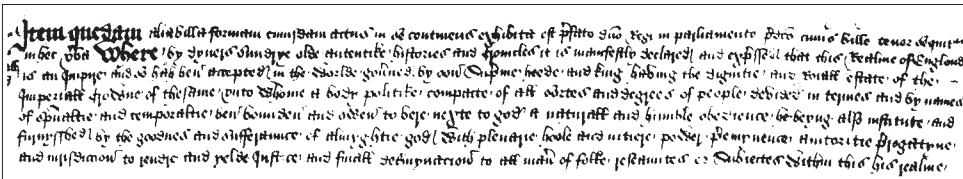 Item quedam alia billa formam cuiusdam actus in se continens exhibita est p̃fato dño Regi in parliamento p̃dco cuius bille tenor sequitur
in hec v̾ba Where by dyvers sundrye olde autentike histories and cronicles it is manifestly declared and exp̃ssed that this Realme of Englond
is an Impire and so hath ben accepted in the Worlde gov̾ned by oon Sup̃me heede and king having the dignitie and Roiall estate of the
Imperiall Crowne of thesame unto Whome a body politike compacte of all sortes and degrees of people devided in termes and by names
of sp̃ualtie and temporaltie ben bounden and owen to bere nexte to god a naturall and humble obedience he beyng also institute and
furnysshed by the goodnes and sufferaunce of almyghtie god With plenarie hoole and intiere power p̃emynence auctoritie p̃rogatyve
and jurisdiccion to rendre and yelde Justice and finall det̾mynacion to all man̾ of folke reseauntes or Subjectes Within this his realme